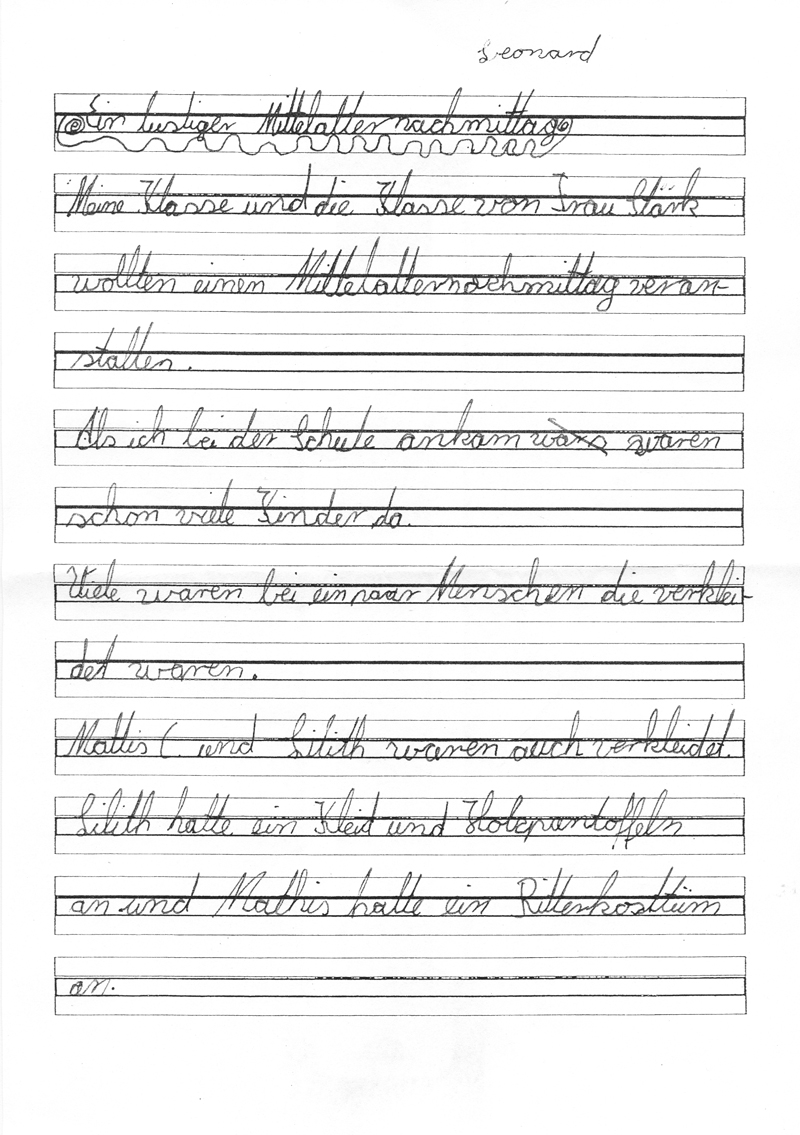 Leonard
Ein lustiger Mittelalternachmittag
Meine Klasse und die Klasse von Frau Stärk
wollten einen Mittelalternachmittag veran-
stalten.
Als ich bei der Schule ankam wars waren
schon viele Kinder da.
Viele waren bei ein paar Menschen die verklei-
det waren.
Mattis C. und Lilith waren auch verkleidet.
Lilith hatte ein Kleid und Holzpantoffeln
an und Mathis hatte ein Ritterkosttüm
an.